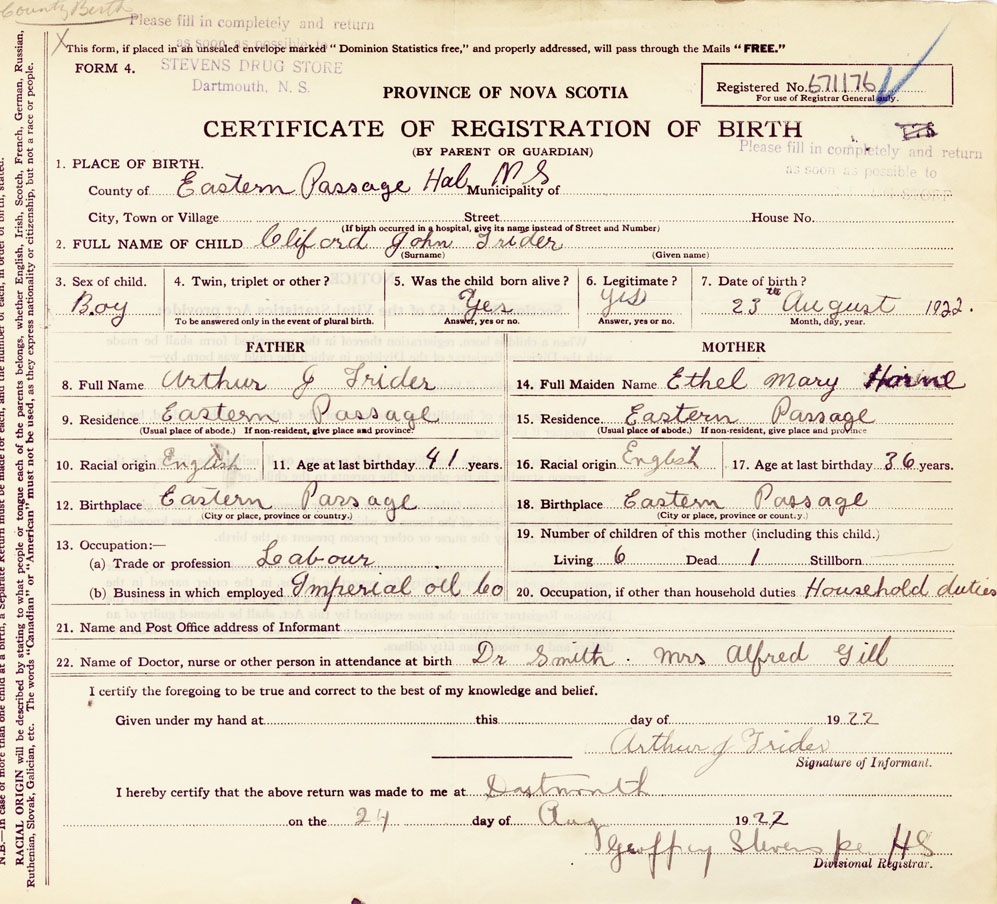 County Birth
Please fill in completely and return
as soon as possible to
X This form, if placed in an unsealed envelope marked "Dominion Statistics free," and properly addressed, will pass through the Mails "FREE."
FORM 4.
STEVENS DRUG STORE
Dartmouth, N. S.
PROVINCE OF NOVA SCOTIA
Registered No. 671176
For use of Registrar General only.
CERTIFICATE OF REGISTRATION OF BIRTH
(BY PARENT OR GUARDIAN)
Please fill in completely and return
as soon as possible to
1. PLACE OF BIRTH.
County of Eastern Passage Hal N S Municipality of
City, Town or Village Street House No.
(If birth occurred in a hospital, give its name instead of Street and Number)
2. FULL NAME OF CHILD Cliford John Trider
(Surname) (Given name)
3. Sex of child. 4. Twin, triplet or other? 5. Was the child born alive? 6. Legitimate? 7. Date of birth?
Boy Yes Yes 23 August 1922.
To be answered only in the event of plural birth. Answer, yes or no. Answer, yes or no. Month, day, year.
FATHER MOTHER
8. Full Name Arthur J Trider 14. Full Maiden Name Ethel Mary Horne
9. Residence Eastern Passage 15. Residence Eastern Passage
(Usual place of abode.) If non-resident, give place and province. (Usual place of abode.) If non-resident, give place and province
10. Racial origin English 11. Age at last birthday 41 years. 16. Racial origin English 17. Age at last birthday 36 years.
12. Birthplace Eastern Passage 18. Birthplace Eastern Passage
(City or place, province or country.) (City or place, province or country.)
13. Occupation:— 19. Number of children of this mother (including this child.)
(a) Trade or profession Labour Living 6 Dead 1 Stillborn
(b) Business in which employed Imperial oil Co 20. Occupation, if other than household duties Household duties
21. Name and Post Office address of Informant
22. Name of Doctor, nurse or other person in attendance at birth Dr Smith. Mrs Alfred Gill
I certify the foregoing to be true and correct to the best of my knowledge and belief.
Given under my hand at this day of 1922
Arthur J Trider
Signature of Informant.
I hereby certify that the above return was made to me at Dartmouth
on the 24 day of Aug 1922
Geoffrey Stevens per HS
Divisional Registrar.
N.B.—In case of more than one child at a birth, a Separate Return must be made for each, and the number of each, in order of birth, stated.
RACIAL ORIGIN will be described by stating to what people or tongue each of the parents belongs, whether English, Irish, Scotch, French, German, Russian,
Ruthenian, Slovak, Galician, etc. The words "Canadian" or "American" must not be used, as they express nationality or citizenship, but not a race or people.